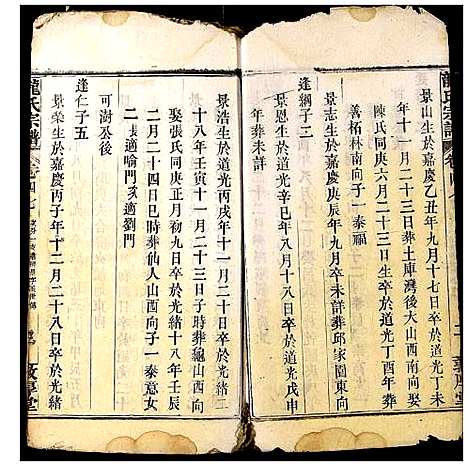 龍氏宗譜
景山生於嘉慶乙丑年九月十七日卒於道光丁未
年十一月二十三日葬土庫灣後大山西南向
陳氏同庚六月二十三日生卒於道光丁酉年葬
善柘林南向子一泰福
景志生於嘉慶庚辰年九月卒未詳葬邱家園東向
逢綱子二
景恩生於道光辛巳年八月十八日卒於道光戊申
年葬未詳
景浩生於道光丙戌年十一月二十日卒於光緒二
十八年壬寅十一月二十三日子時葬龜山西向
娶張氏同庚正月初九日卒於光緒十八年壬辰
二月二十四日巳時葬仙人山西向子一泰意女
二長適喻門次適劉門
可澍公後
逢仁子五
景榮生於嘉慶丙子年十二月二十八日卒於咸
龍氏宗譜
敦厚堂